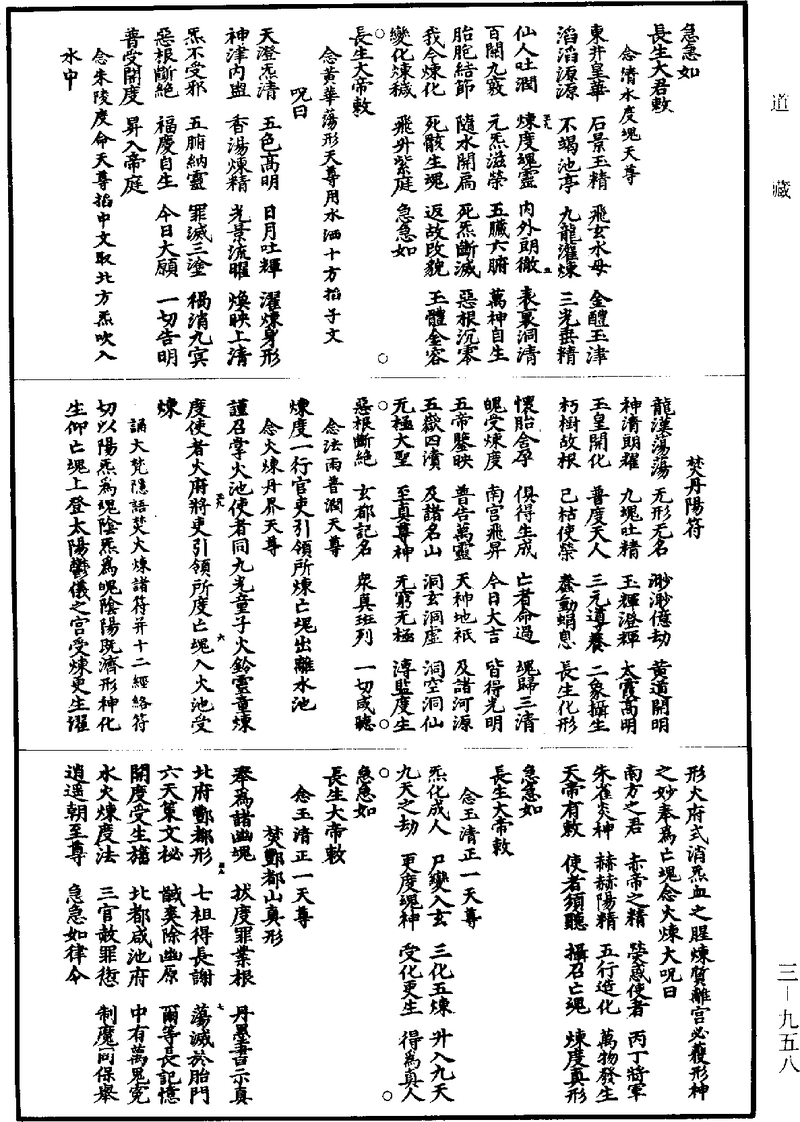 急急如
長生大君敕
念清水度魂天尊
東井皇華　石景玉精　飛玄水母　金醴玉津
滔滔源源　不竭池亭　九龍灌煉　三光垂精
仙人吐潤　煉度魂靈　內外朗徹　表裏洞清
百關九竅　元炁滋榮　五臟六腑　萬神自生
胎胞結節　隨水開扃　死炁斷滅　惡根沉零
我今煉化　死骸生魂　返故改貌　玉體金容
變化煉穢　飛升紫庭　急急如
長生大帝敕
念黃華蕩形天尊用水洒十方掐子文
呪曰
天澄炁清　五色高明　日月吐輝　濯煉身形
神津內盥　香湯煉精　光景流曜　煥映上清
炁不受邪　五腑納靈　罪滅三塗　禍消九冥
惡根斷絕　福慶自生　今日大願　一切告明
普受開度　昇入帝庭
念朱陵度命天尊掐中文取北方炁吹入
水中
焚丹陽符
龍漢蕩蕩　无形无名　渺渺億劫　黃道開明
神清朗耀　九魂吐精　玉輝澄輝　太霞高明
玉皇開化　普度天人　三元導養　二象攝生
朽樹故根　已枯使榮　蠢動蜎息　長生化形
懷胎含孕　俱得生成　亡者命過　魂歸三清
魄受煉度　南宮飛昇　今日大吉　皆得光明
五帝鑒映　普告萬靈　天神地祇　及諸河源
五嶽四瀆　及諸名山　洞玄洞虛　洞空洞仙
无極大聖　至真尊神　无窮无極　溥監度生
惡根斷絕　玄都記名　眾真班列　一切咸聽
念法雨普潤天尊
煉度一行官吏引領所煉亡魂出離水池
念火煉丹界天尊
謹召掌火池使者同九光童子火鈴靈童煉
度使者火府將吏引領所度亡魂入火池受
煉
誦大梵隱語焚火煉諸符并十二經絡符
切以陽炁為魂陰炁為魄陰陽既濟形神化
生仰亡魂上登太陽鬱儀之宮受煉更生濯
形火府式消炁血之腥煉質離宮必獲形神
之妙奉為亡魂念火煉大呪曰
南方之君　赤帝之精　熒惑使者　丙丁將軍
朱雀炎神　赫赫陽精　五行造化　萬物發生
天帝有敕　使者須聽　攝召亡魂　煉度真形
急急如
長生大帝敕
念玉清正一天尊
炁化成人　尸變入玄　三化五煉　升入九天
九天之劫　更度魂神　受化更生　得為真人
急急如
長生大帝敕
念玉清正一天尊
焚酆都山真形
奉為諸幽魂　拔度罪業根　丹墨書示真
北府酆都形　七祖得長謝　蕩滅於胎門
六天策文祕　馘爽除幽原　爾等長記憶
開度受生旛　北都咸池府　中有萬鬼冤
水火煉度法　三官赦罪愆　制魔同保舉
逍遥朝至尊　急急如律令
道藏
三－九五八